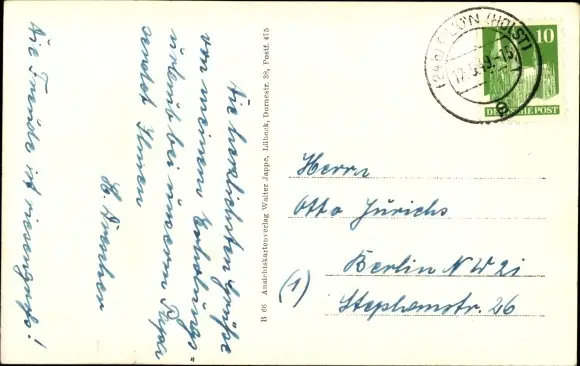 Die herzlichsten Grüße
von meinem Erholungs=
urlaub bei unserm Papa
sendet Ihnen
H. Drescher
Die Freude ist riesengroß!
B 66 Ansichtskartenverlag Walter Jappe, Lübeck, Dornestr. 38, Postf. 475
(24b) PLÖN (HOLST)
49.-15
10
DEUTSCHE POST
Herrn
Otto Jürichs
Berlin NW 21
(1)
Stephanstr. 26